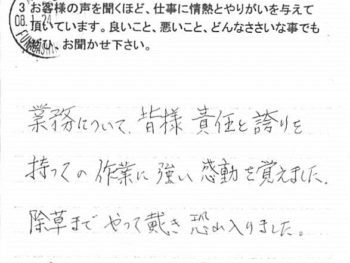 3 お客様の声を聞くほど、仕事に情熱とやりがいを与えて
頂いています。良いこと、悪いこと、どんなささいな事でも
、お聞かせ下さい。
業務について、皆様 責任と誇りを
持っての 作業に 強い 感動を覚えました。
除草まで やって戴き 恐れ入りました。